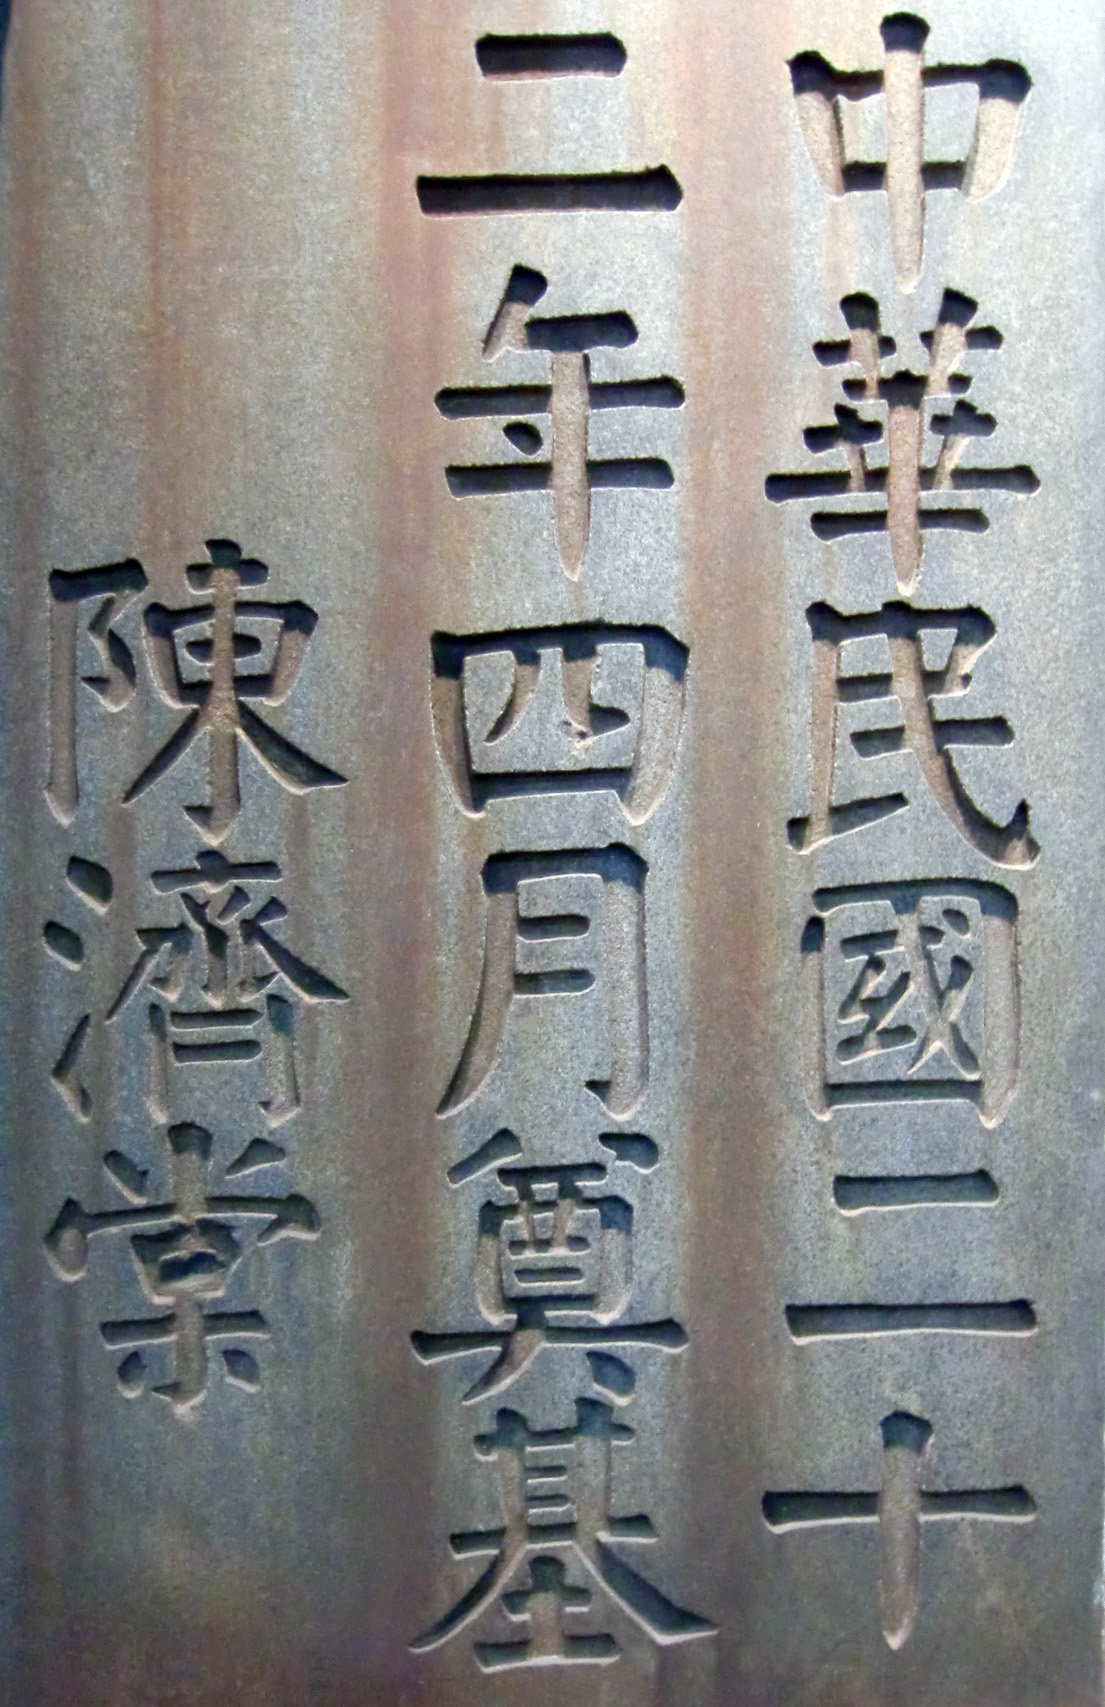 中華民國二十
二年四月奠基
陳濟棠